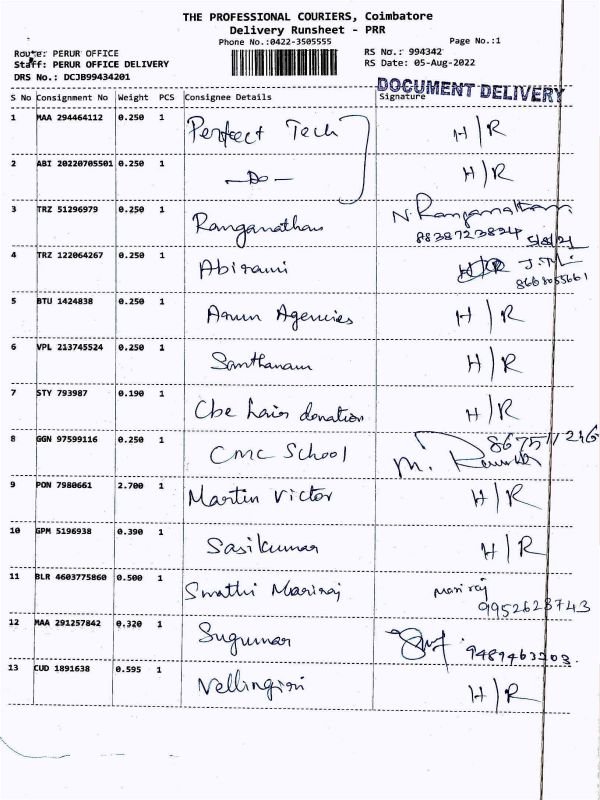 THE PROFESSIONAL COURIERS, Coimbatore
Delivery Runsheet - PRR
Phone No.:0422-3505555
Page No.:1
Route: PERUR OFFICE
RS No.: 994342
Staff: PERUR OFFICE DELIVERY
RS Date: 05-Aug-2022
DRS No.: DCJB99434201
DOCUMENT DELIVERY
S No Consignment No Weight PCS Consignee Details Signature
1 MAA 294464112 0.250 1 Perfect Tech H/R
2 ABI 20220705501 0.250 1 —Do— H/R
3 TRZ 51296979 0.250 1 Ranganathan N. Ranganathan
8838723824
4 TRZ 122064267 0.250 1 Abirami H/R
8668055661
5 BTU 1424838 0.250 1 Arun Agencies H/R
6 VPL 213745524 0.250 1 Santhanam H/R
7 STY 793987 0.190 1 Cbe hair donation H/R
8 GGN 97599116 0.250 1 CMC School M.
9 PON 7980661 2.700 1 Martin Victor H/R
10 GPM 5196938 0.390 1 Sasikumar H/R
11 BLR 4603775860 0.500 1 Swathi Mariraj Mariraj
9952628743
12 MAA 291257842 0.320 1 Sugumar
9489463203.
13 CUD 1891638 0.595 1 Vellingiri H/R